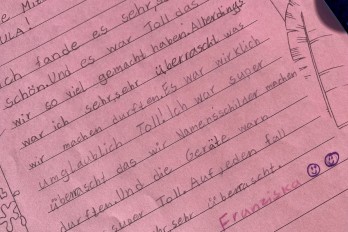 ULA!
ich fande es sehr,
schön. Und es war Toll das
wir so viel gemacht haben. Allerdings
war ich sehr, sehr überrascht was
wir machen durften. Es war wirklich
umglaublich Toll! Ich war super
überrascht das wir Namensschilder machen
durften. Und die Geräte warn
super Toll. Auf jeden fall
sehr überrascht.
Franziska